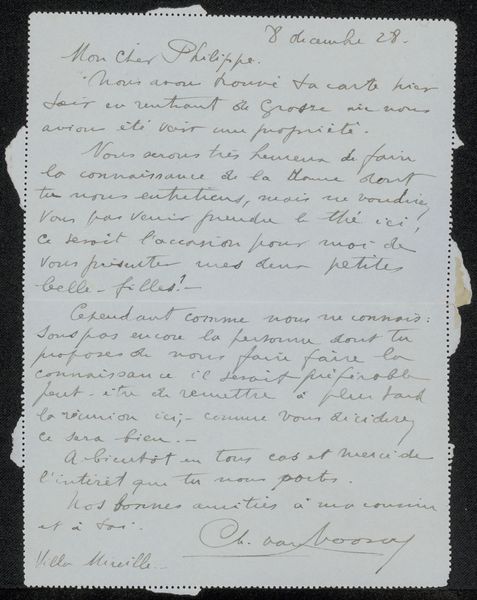 8 decembre 28.
Mon cher Philippe.
Nous avons trouvé ta carte hier
soir en rentrant de Grasse où nous
avions été voir une propriété.
Nous serons très heureux de faire
la connaissance de la Dame dont
tu nous entretiens, mais ne voudriez
vous pas venir prendre le thé ici,
ce serait l'occasion pour moi de
vous présenter mes deux petites
belle-filles? -
Cependant comme nous ne connais:
sons pas encore la personne dont tu
proposes de nous faire faire la
connaissance il serait préférable
peut-être de remettre à plus tard
la réunion ici, - comme vous déciderez
ce sera bien. -
A bientôt en tous cas et merci de
l'intérêt que tu nous portes.
Nos bonnes amitiés à ma cousine
et à toi.
Ch. van
Villa Mireille.